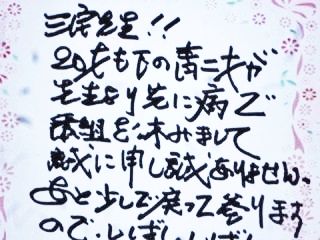 三宅先生!!
20才も下の青二才が
先生より先に病で
番組を休みまして
誠に申し訳ありません。
あと少しで戻って参ります
ので、しばし